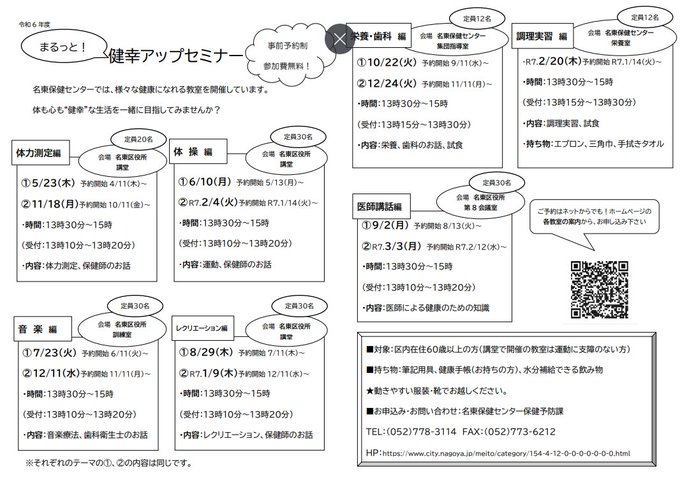 令和6年度
まるっと!
健幸アップセミナー
事前予約制
参加費無料!
名東保健センターでは、様々な健康になれる教室を開催しています。
体も心も"健幸"な生活を一緒に目指してみませんか?
定員20名
体力測定編
会場 名東区役所
講堂
①5/23(木) 予約開始 4/11(木)~
②11/18(月) 予約開始 10/11(金)~
・時間:13時30分~15時
(受付:13時10分~13時20分)
・内容:体力測定、保健師のお話
定員30名
体 操 編
会場 名東区役所
講堂
①6/10(月) 予約開始 5/13(月)~
②R7.2/4(火) 予約開始 R7.1/14(火)~
・時間:13時30分~15時
(受付:13時10分~13時20分)
・内容:運動、保健師のお話
定員30名
音 楽 編
会場 名東区役所
訓練室
①7/23(火) 予約開始 6/11(火)~
②12/11(水) 予約開始 11/11(月)~
・時間:13時30分~15時
(受付:13時10分~13時20分)
・内容:音楽療法、歯科衛生士のお話
定員30名
レクリエーション編
会場 名東区役所
講堂
①8/29(木) 予約開始 7/11(木)~
②R7.1/9(木) 予約開始 12/11(水)~
・時間:13時30分~15時
(受付:13時10分~13時20分)
・内容:レクリエーション、保健師のお話
※それぞれのテーマの①、②の内容は同じです。
定員12名
栄養・歯科 編
会場 名東保健センター
集団指導室
①10/22(火) 予約開始 9/11(水)~
②12/24(火) 予約開始 11/11(月)~
・時間:13時30分~15時
(受付:13時15分~13時30分)
・内容:栄養、歯科のお話、試食
定員12名
調理実習 編
会場 名東保健センター
栄養室
・R7.2/20(木) 予約開始 R7.1/14(火)~
・時間:13時30分~15時
(受付:13時15分~13時30分)
・内容:調理実習、試食
・持ち物:エプロン、三角巾、手拭きタオル
定員30名
医師講話編
会場 名東区役所
第8会議室
①9/2(月) 予約開始 8/13(火)~
②R7.3/3(月) 予約開始 R7.2/12(水)~
・時間:13時30分~15時
(受付:13時10分~13時20分)
・内容:医師による健康のための知識
ご予約はネットからでも!ホームページの
各教室の案内から、お申し込み下さい
■対象:区内在住60歳以上の方(講堂で開催の教室は運動に支障のない方)
■持ち物:筆記用具、健康手帳(お持ちの方)、水分補給できる飲み物
★動きやすい服装・靴でお越しください。
■お申込み・お問い合わせ:名東保健センター保健予防課
TEL:(052)778-3114 FAX:(052)773-6212
HP:https://www.city.nagoya.jp/meito/category/154-4-12-0-0-0-0-0-0-0.html